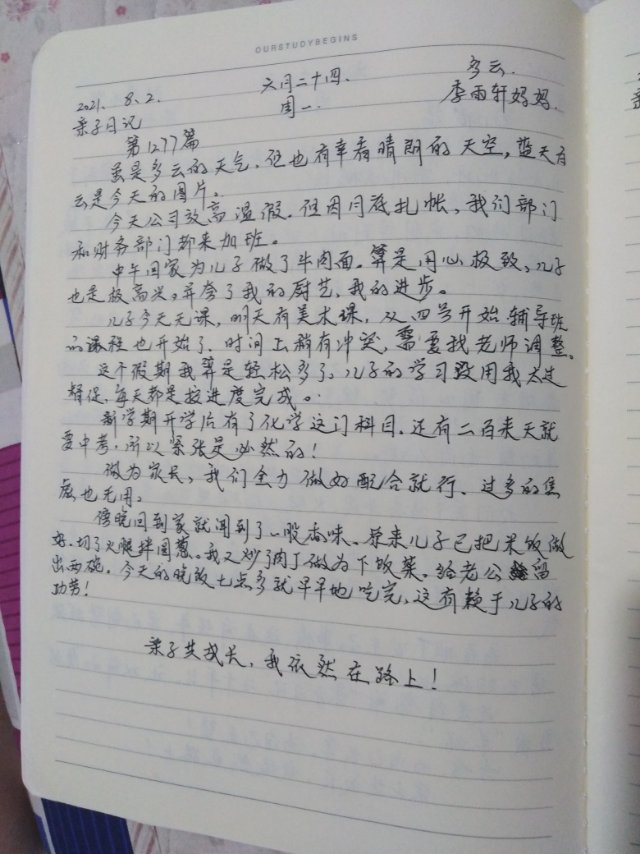 OURSTUDYBEGINS
2021. 8. 2. 六月二十四. 多云.
亲子日记 周一. 李雨轩妈妈.
第1277篇
虽是多云的天气, 但也有幸看晴朗的天空, 蓝天白
云是今天的图片。
今天公司放高温假. 但因月底扎帐, 我们部门
和财务部门都来加班。
中午回家为儿子做了牛肉面. 算是用心极致, 儿子
也是极高兴, 并夸了我的厨艺, 我的进步。
儿子今天无课, 明天有美术课, 从四号开始辅导班
的课程也开始了, 时间上稍有冲突, 需要找老师调整。
这个假期我算是轻松多了, 儿子的学习没用我太过
督促, 每天都是按进度完成。
新学期开学后有了化学这门科目. 还有二百来天就
要中考, 所以紧张是必然的!
做为家长, 我们全力做好配合就行, 过多的焦
虑也无用。
傍晚回到家就闻到了一股香味, 原来儿子已把米饭做
好. 切了火腿拌圆葱. 我又炒了肉丁做为下饭菜. 给老公留
出两碗, 今天的晚饭七点多就早早地吃完, 这有赖于儿子的
功劳!
亲子共成长, 我依然在路上!